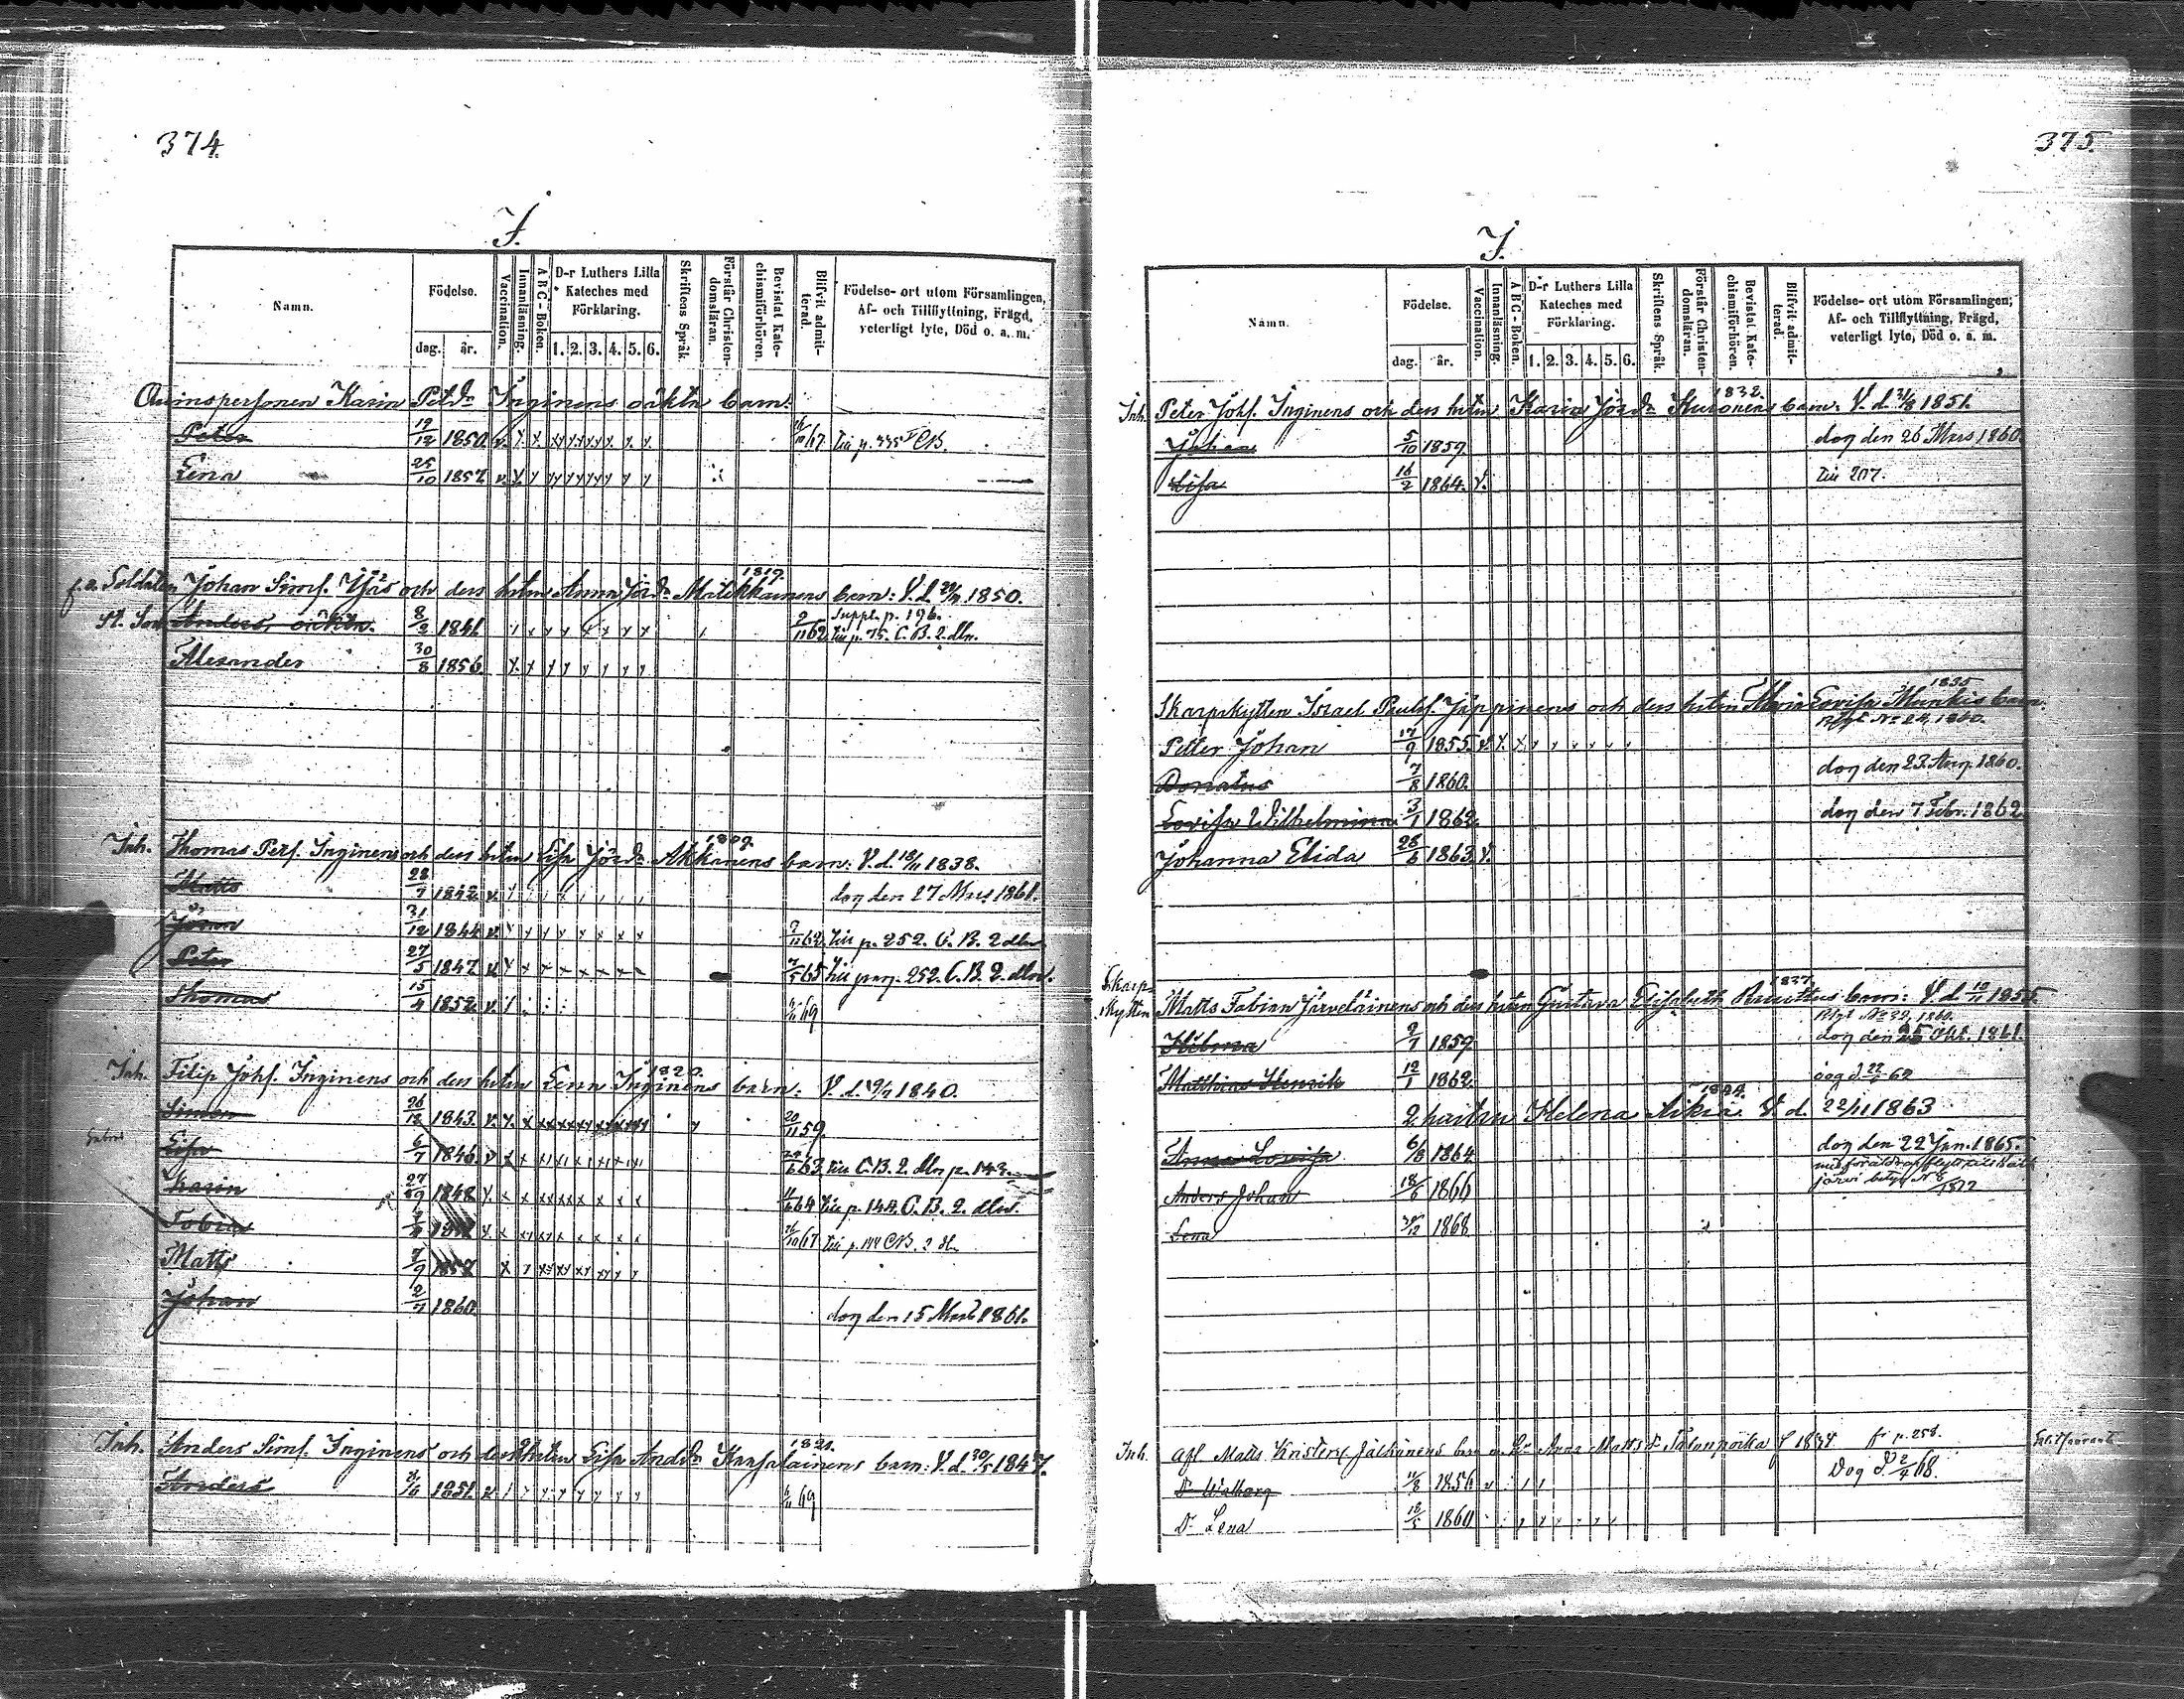 374.
I.
Namn.
Födelse.
dag.
år.
Vaccination.
Innanläsning.
ABC-Boken.
D-r Luthers Lilla
Kateches med
Förklaring.
1. 2. 3. 4. 5. 6.
Skriftens Språk.
Förstår Christen-
domsläran.
Bevistat Kate-
chismiförhören.
Blifvit admit-
terad.
Födelse- ort utom Församlingen,
Af- och Tillflyttning, Frägd,
veterligt lyte, Död o. a. m.
Qvinspersonen Karin Petdr Inginens oäkta barn:
Peter 19/12 1850. 67. Till p. 335 CB.
Lena 25/10 1857
1819.
f.a. Soldaten Johan Sims. och dess hstru Anna Jördr Matikkainens barn: V. d. 1850.
Suppl. p. 196.
St. Son Anders, oäkta. 8/2 1841. 2/11 62. Till p. 75. C. B. 2. dln.
Alexander 30/8 1856.
Inh. Thomas Pers. Inginens och dess hstru Lisa Jördr Akkanens barn: V. d. 18/11 1838.
Matts 28/7 1842. dog den 27 Mars 1861.
Jöran 31/12 1844. 2/11 62. Till p. 252. C. B. 2 dln.
Peter 27/5 1847. 7/5 65 Till pag. 252. C. B. 2. dln.
Thomas 15/4 1852. 69
1820.
Inh. Filip Johs. Inginens och dess hstru Lena Inginens barn: V. d. 1840.
Simon 26/12 1843. 20/11 59.
Lisa 6/7 1846. 63. Till C. B. 2. dln p. 143.
Karin 27/9 1848 64 Till p. 144. C. B. 2. dln.
Tobias 67 Till p. 144 CB. 2 dln
Matts 7/9 1857
Johan 2/7 1860. dog den 15 Mars 1861.
1821.
Inh. Anders Sims. Inginens och dess hstru Lisa Anddr Karsalainens barn: V. d. 1847.
Anders 1851. 69
375.
I.
Namn.
Födelse.
dag.
år.
Vaccination.
Innanläsning.
ABC-Boken.
D-r Luthers Lilla
Kateches med
Förklaring.
1. 2. 3. 4. 5. 6.
Skriftens Språk.
Förstår Christen-
domsläran.
Bevistat Kate-
chismiförhören.
Blifvit admit-
terad.
Födelse- ort utom Församlingen,
Af- och Tillflyttning, Frägd,
veterligt lyte, Död o. a. m.
1832.
Inh. Peter Johs. Inginens och dess hstru Karin Jördr barn: V. d. 1851.
Johan 5/10 1859. dog den 26 Mars 1860.
Lisa 16/2 1864. Till 207.
1835
Skarpskytten Israel Pauls. Jäppinens och dess hstru Maria Lovisa Munkis barn:
Btgt No 24, 1860.
Petter Johan 17/9 1855.
Donatus 7/8 1860. dog den 23. Aug. 1860.
Lovisa Wilhelmina 3/1 1862. dog den 7 Febr. 1862.
Johanna Elida 28/6 1863.
1837.
Skarp-
skytten Matts Fabian Järveläinens och dess hstru Gustava Elisabeth barn: V. d. 1855.
Btgt No 39, 1860.
Hilma 2/7 1859. dog den 25 1861.
Matthias Henrik 12/1 1862. dog d. 62
2 hustru Helena Aikiä V. d. 22/11 1863
Anna Lovisa 6/8 1864 dog den 22 Jan. 1865.
Anders Johan 18/6 1866
Lena 1868
Inh. Afl. Matts Kristers. Jälkänens barn Anna Mattsdr f 1834 fr p. 258.
Dr Walborg 11/8 1856 Dog d. 68.
Dr Lena 12/5 1860